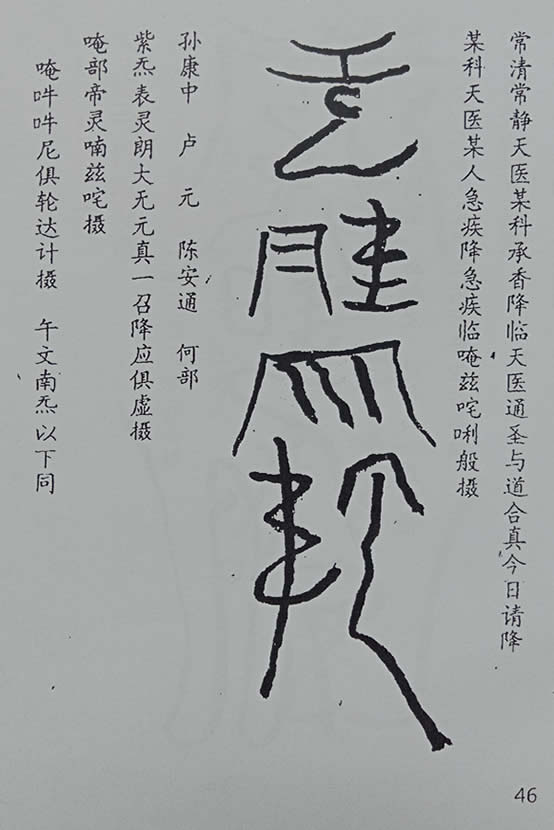 常清常静天医某科承香降临天医通圣与道合真今日请降
某科天医某人急疾降急疾临唵兹咤唎般摄
孙康中 卢元 陈安通 何部
紫炁表灵朗大无元真一召降应俱虚摄
唵部帝灵喃兹咤摄
唵吽吽尼俱轮达计摄 午文南炁以下同
46